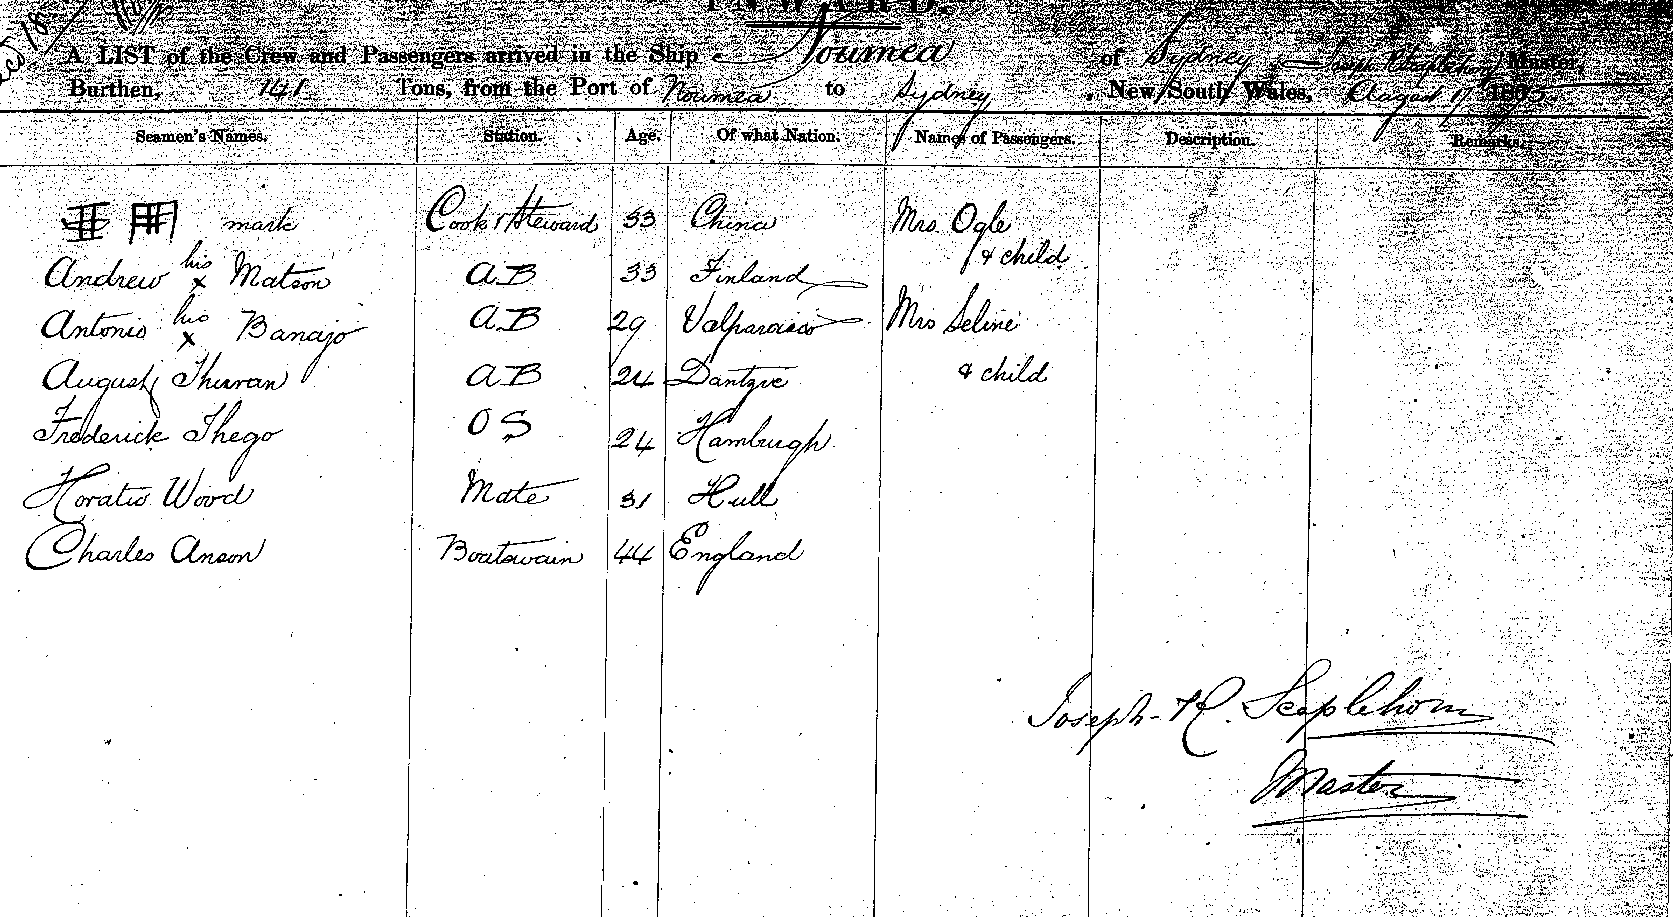 INWARD.
A LIST of the Crew and Passengers arrived in the Ship Noumea of Sydney Master,
Burthen, 141 Tons, from the Port of Noumea to Sydney, New South Wales, 17
Seamen's Names. Station. Age. Of what Nation. Names of Passengers. Description. Remarks.
mark Cook & Steward 33 China Mrs Ogle
& child
Andrew his x Matson AB 33 Finland
Antonio his x Banajo AB 29 Valparaiso Mrs Seline
August AB 24 Dantzic & child
Frederick Thego OS 24 Hamburgh
Horatio Wood Mate 31 Hull
Charles Anson Boatswain 44 England
Joseph R. Scaplehorn
Master